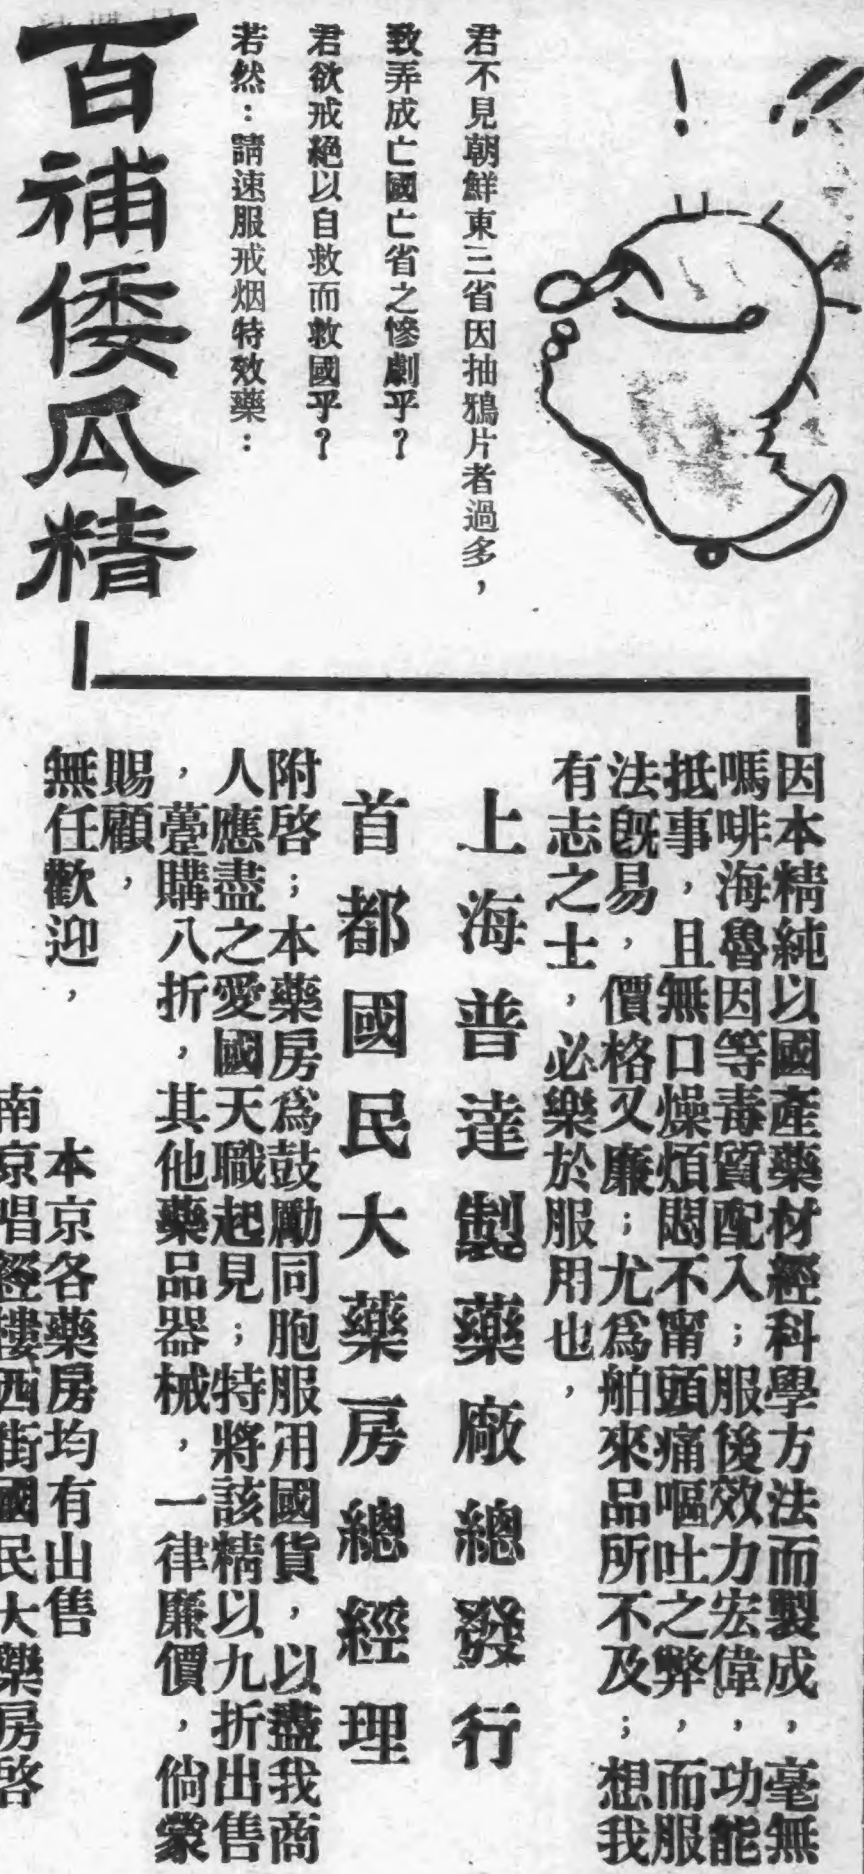 君不見朝鮮東三省因抽鴉片者過多，
致弄成亡國亡省之慘劇乎？
君欲戒絕以自救而救國乎？
若然：請速服戒烟特效藥：
百補倭瓜精
因本精純以國產藥材經科學方法而製成，毫無
嗎啡海魯因等毒質配入；服後效力宏偉，功能
抵事，且無口燥煩悶不甯頭痛嘔吐之弊，而服
法旣易，價格又廉；尤爲舶來品所不及；想我
有志之士，必樂於服用也，
上海普達製藥廠總發行
首都國民大藥房總經理
附啓；本藥房爲鼓勵同胞服用國貨，以盡我商
人應盡之愛國天職起見；特將該精以九折出售
，躉購八折，其他藥品器械，一律廉價，倘蒙
賜顧，
無任歡迎，
本京各藥房均有出售
南京唱經樓西街國民大藥房啓